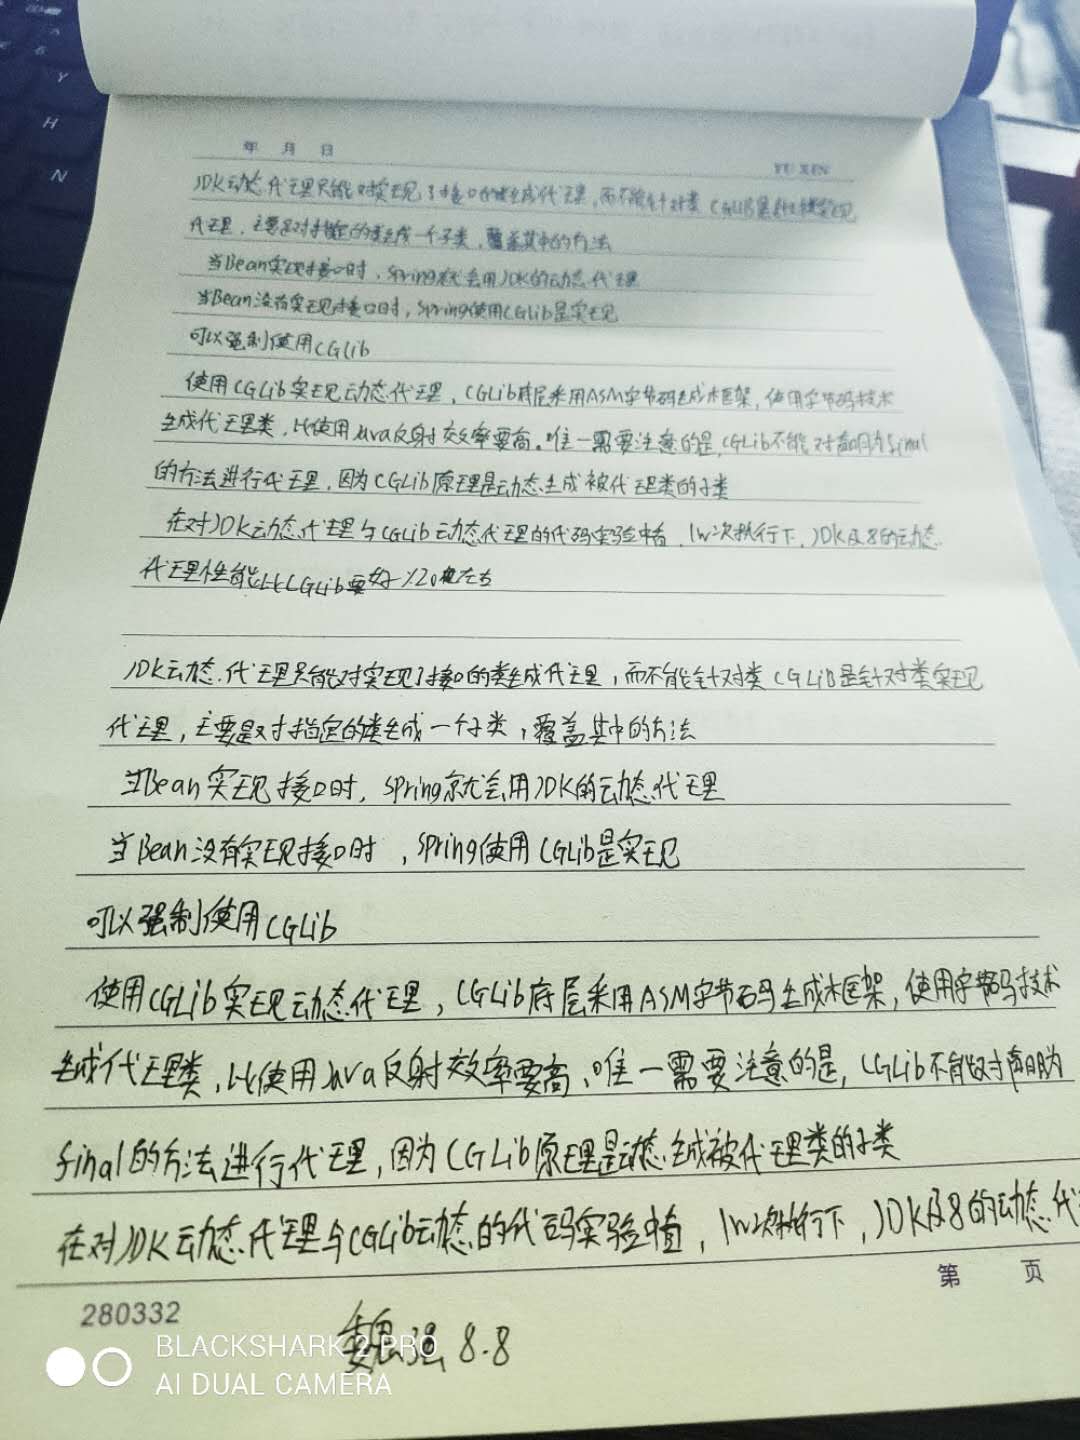 Y
H
N
年 月 日
YU XIN
JDK动态代理只能对实现了接口的类生成代理,而不能针对类 CGLIB是针对类实现
代理,主要是对指定的类生成一个子类,覆盖其中的方法
当Bean实现接口时,Spring就会用JDK的动态代理
当Bean没有实现接口时,Spring使用CGLib是实现
可以强制使用CGLib
使用CGLib实现动态代理,CGLib底层采用ASM字节码生成术框架,使用字节码技术
生成代理类,比使用Java反射效率要高。唯一需要注意的是,CGLib不能对声明为final
的方法进行代理,因为CGLib原理是动态生成被代理类的子类
在对JDK动态代理与CGLib动态代理的代码实验中看,1w次执行下,JDK及8的动态
代理性能比CGLib要好%20左右
JDK动态代理只能对实现了接口的类生成代理,而不能针对类 CGLIB是针对类实现
代理,主要是对指定的类生成一个子类,覆盖其中的方法
当Bean实现接口时,Spring就会用JDK的动态代理
当Bean没有实现接口时,Spring使用CGLib是实现
可以强制使用CGLib
使用CGLib实现动态代理,CGLib底层采用ASM字节码生成术框架,使用字节码技术
生成代理类,比使用Java反射效率要高,唯一需要注意的是,CGLib不能对声明为
final的方法进行代理,因为CGLib原理是动态生成被代理类的子类
在对JDK动态代理与CGLib动态的代码实验中看,1w次执行下,JDK及8的动态代
第 页
280332
魏强 8.8
BLACKSHARK 2 PRO
AI DUAL CAMERA